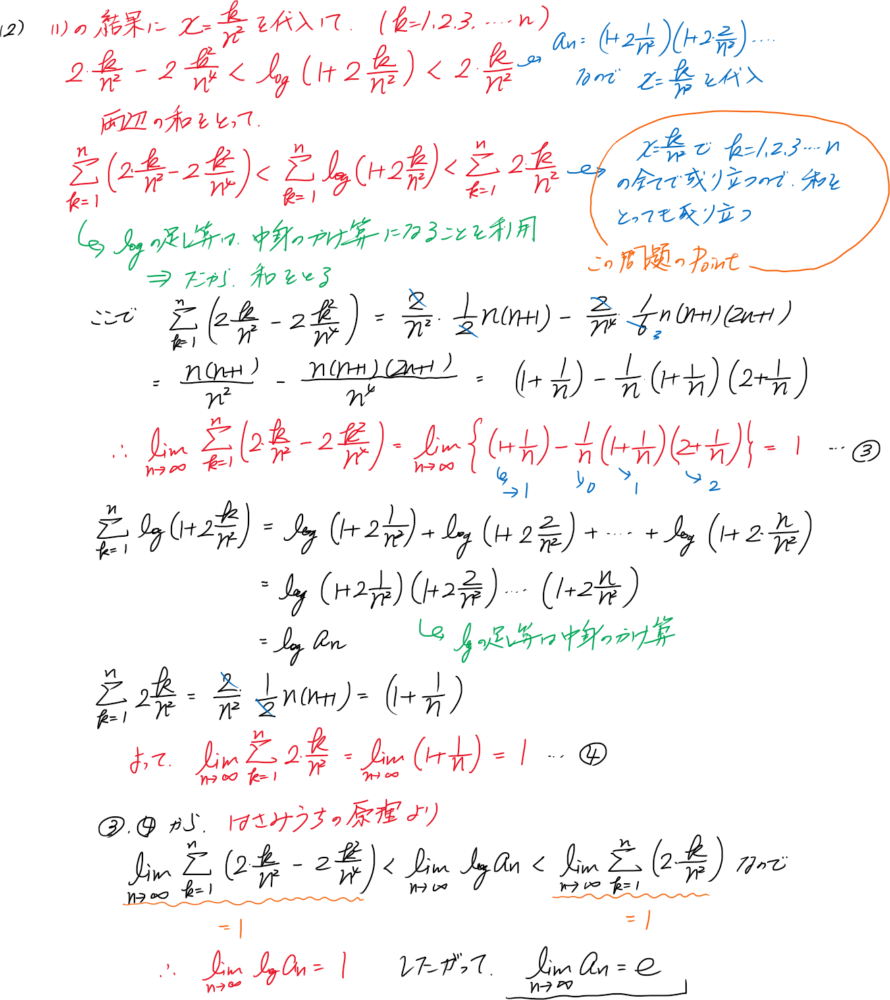 (2) (1)の結果に x=k/n² を代入して. (k=1.2.3.….n)
2・k/n² - 2 k²/n⁴ < log(1+2 k/n²) < 2・k/n²
an=(1+2 1/n²)(1+2・2/n²)….
なので x=k/n² を代入
両辺の和をとって.
Σ[k=1→n](2・k/n² - 2 k²/n⁴) < Σ[k=1→n] log(1+2 k/n²) < Σ[k=1→n] 2・k/n²
x=k/n² で k=1.2.3…n
の全てで成り立つので. 和を
とっても成り立つ
この問題のPoint
logの足し算は. 中身のかけ算になることを利用
⇒ だから. 和をとる
ここで Σ[k=1→n](2 k/n² - 2 k²/n⁴) = 2/n²・1/2 n(n+1) - 2/n⁴・1/6 n(n+1)(2n+1)
3
= n(n+1)/n² - n(n+1)(2n+1)/n⁴ = (1+1/n) - 1/n(1+1/n)(2+1/n)
∴ lim[n→∞] Σ[k=1→n](2・k/n² - 2 k²/n⁴) = lim[n→∞]{(1+1/n) - 1/n(1+1/n)(2+1/n)} = 1 … ③
→1 0 1 2
Σ[k=1→n] log(1+2 k/n²) = log(1+2 1/n²) + log(1+2 2/n²) + …. + log(1+2・n/n²)
= log(1+2 1/n²)(1+2 2/n²)….(1+2 n/n²)
= log an
logの足し算は中身のかけ算
Σ[k=1→n] 2 k/n² = 2/n²・1/2 n(n+1) = (1+1/n)
よって. lim[n→∞] Σ[k=1→n] 2・k/n² = lim[n→∞](1+1/n) = 1 … ④
③.④から. はさみうちの原理より
lim[n→∞] Σ[k=1→n](2・k/n² - 2 k²/n⁴) < lim[n→∞] log an < lim[n→∞] Σ[k=1→n](2・k/n²) なので
=1 =1
∴ lim[n→∞] log an = 1 したがって. lim[n→∞] an = e